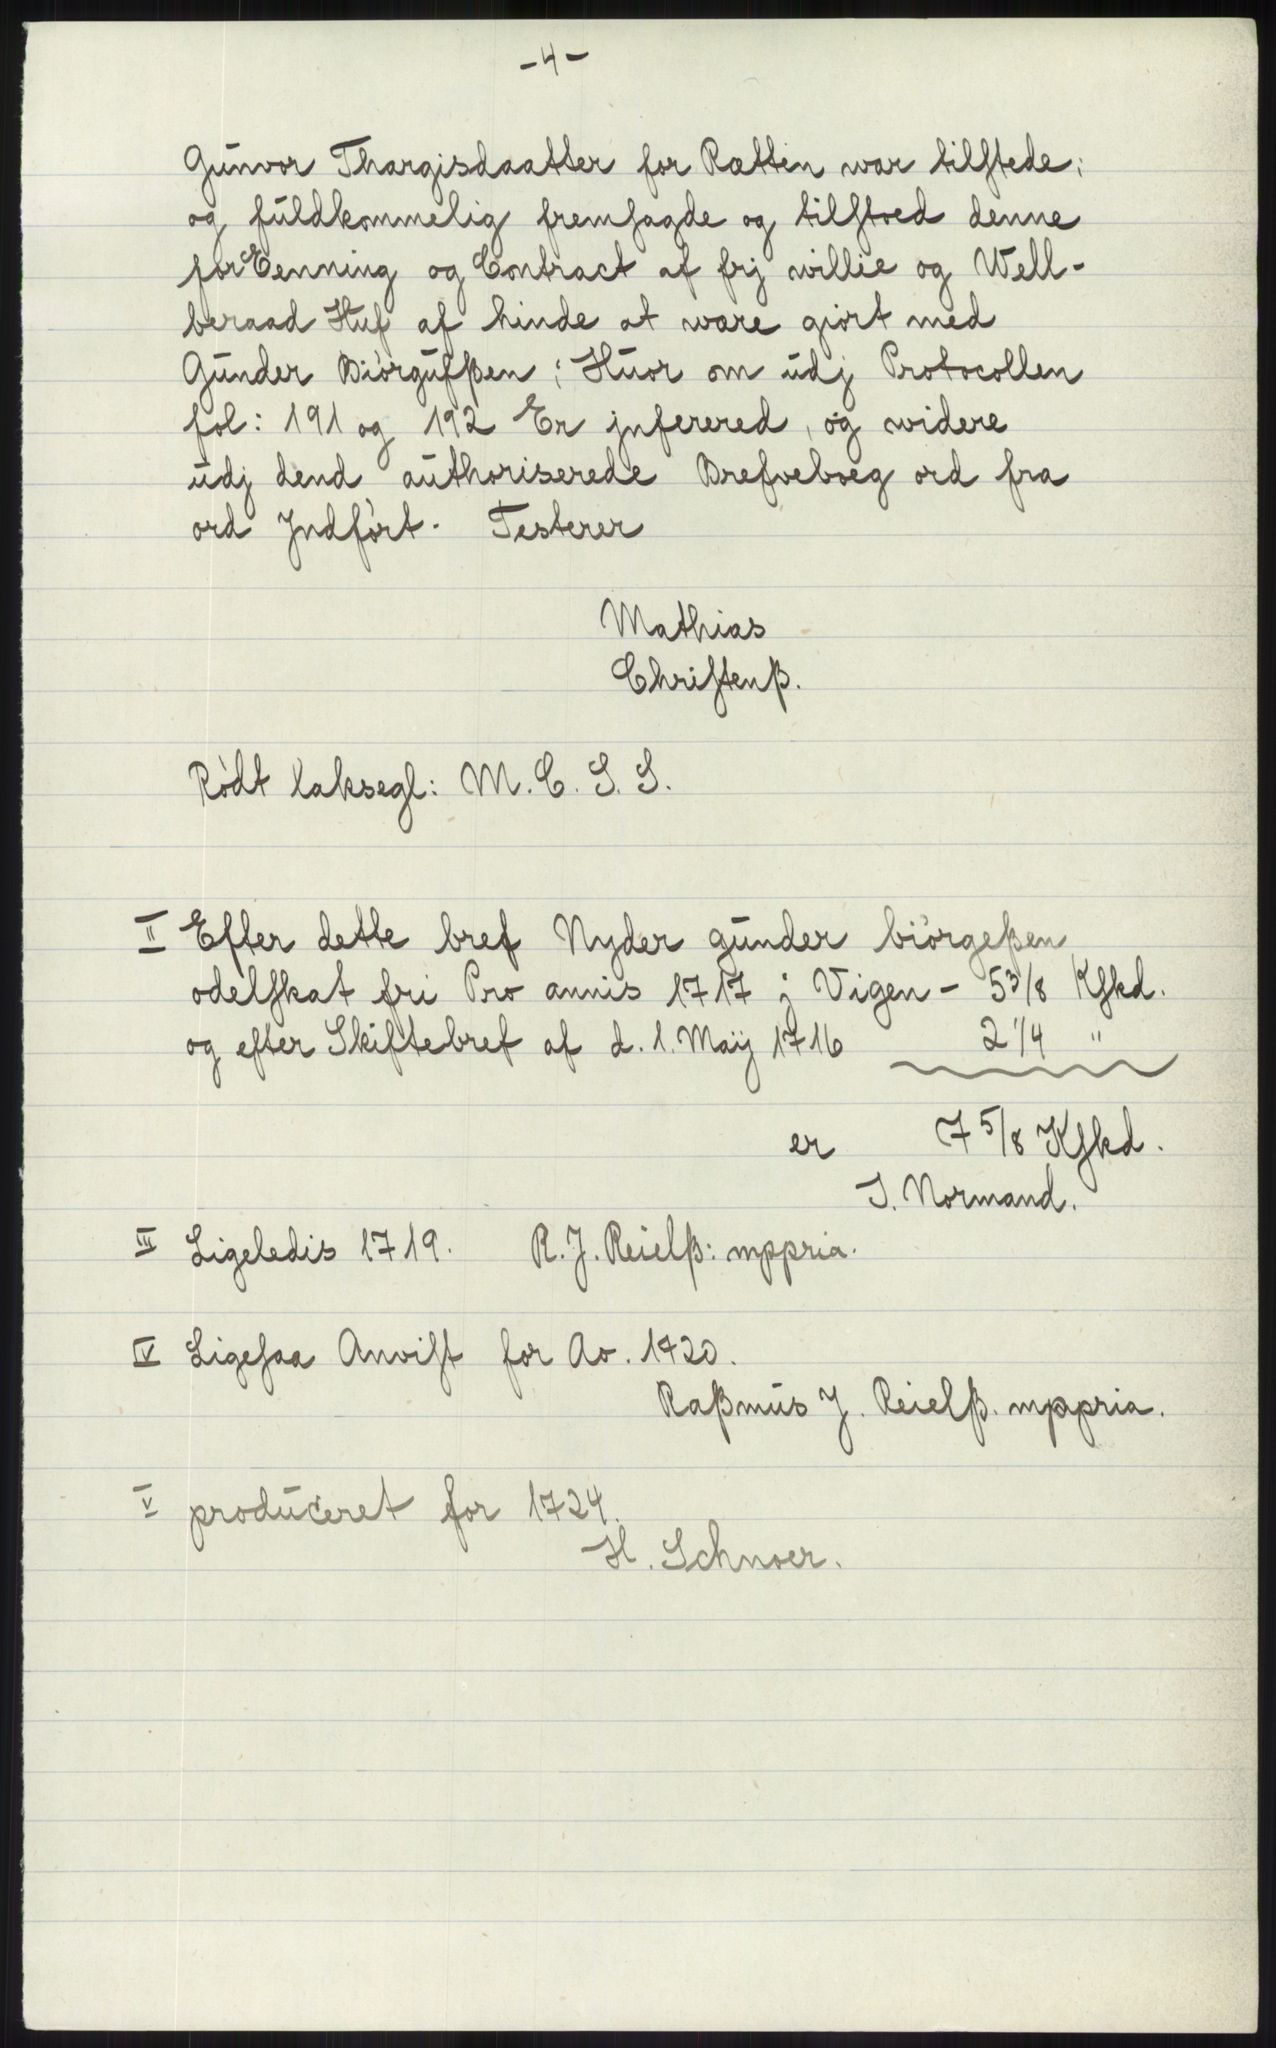 -4-
Gunvor Thargisdaatter for Rættin war tilstede;
og fuldkommelig fremsagde og tilstoed denne
forEenning og Contract af frj willie og Well-
beraad Huf af hinde at wære giört med
Gunder Biörgufßen; Huor om udj Protocollen
fol: 191 og 192 Er jnferered, og widere
udj dend authoriserede Brefveboeg ord fra
ord Jndfört. Testerer
Mathias
Christenß.
Rødt laksegl: M. C. S. S.
II Efter dette bref Nyder gunder biörgeßen
odelskat fri Pro annis 1717 j Vigen - 5 3/8 Kskd.
og efter Skiftebref af d. 1. Maij 1716 2 1/4 "
er 7 5/8 Kskd.
J. Normand.
III Ligeledis 1719. R. J. Reielß: mppria.
IV Ligesaa Anvist for Ao. 1720.
Raßmus J. Reielß. mppria.
V produceret for 1724.
H. Schnoer.